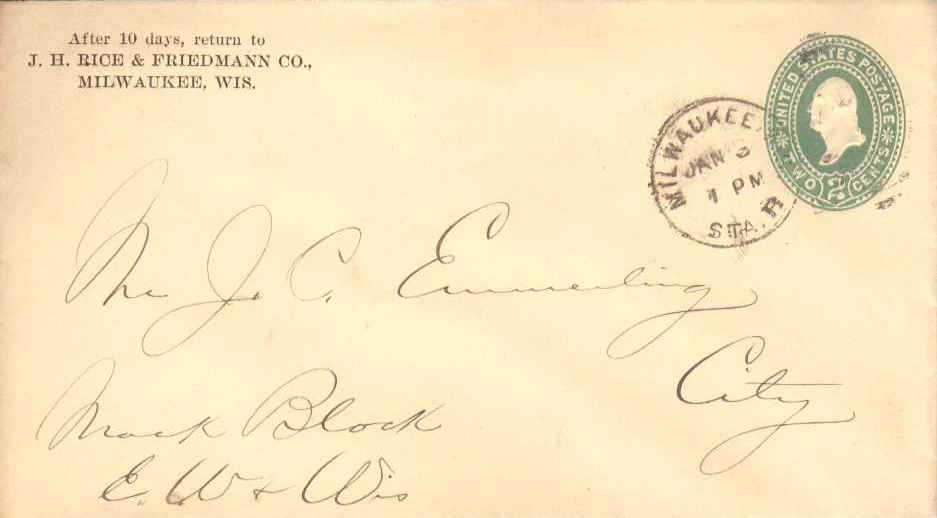 After 10 days, return to
J. H. RICE & FRIEDMANN CO.,
MILWAUKEE, WIS.
UNITED STATES POSTAGE
TWO 2 CENTS
MILWAUKEE,
JAN
1 PM
STA.
Mr J. C. Emmerling
City
Mack Block
E. W & Wis